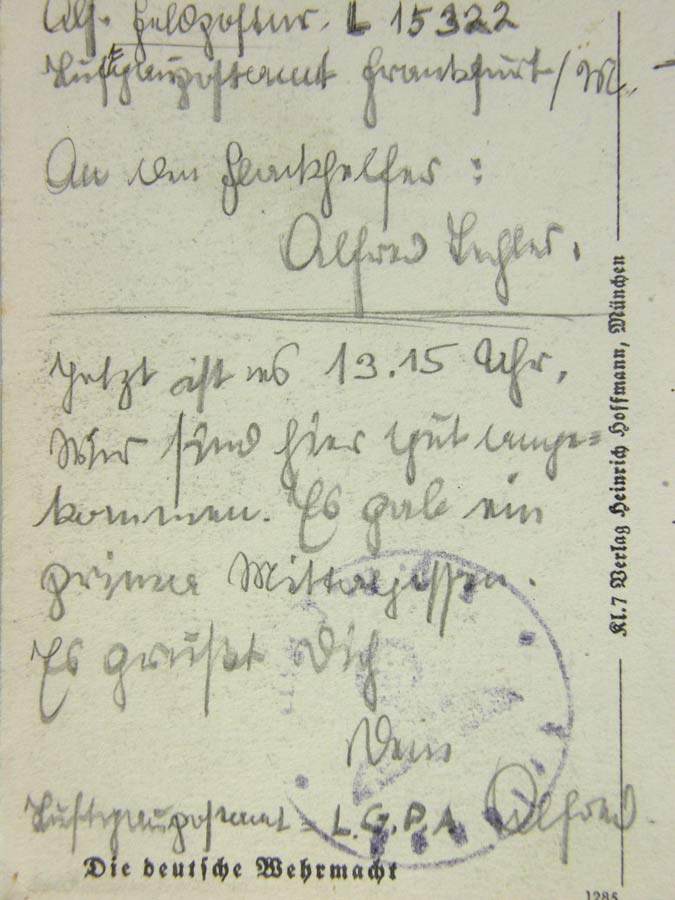 Abs. Feldpostnr. L 15322
Luftgaupostamt Frankfurt/M.
An den Flackhelfer:
Alfred Lechler.
Jetzt ist es 13.15 Uhr.
Wir sind hier gut ange=
kommen. Es gab ein
prima Mittagessen.
Es grüßt Dich
Dein
Alfred.
Luftgaupostamt = L.G.P.A.
Die deutsche Wehrmacht
Kl.7 Verlag Heinrich Hoffmann, München
1285